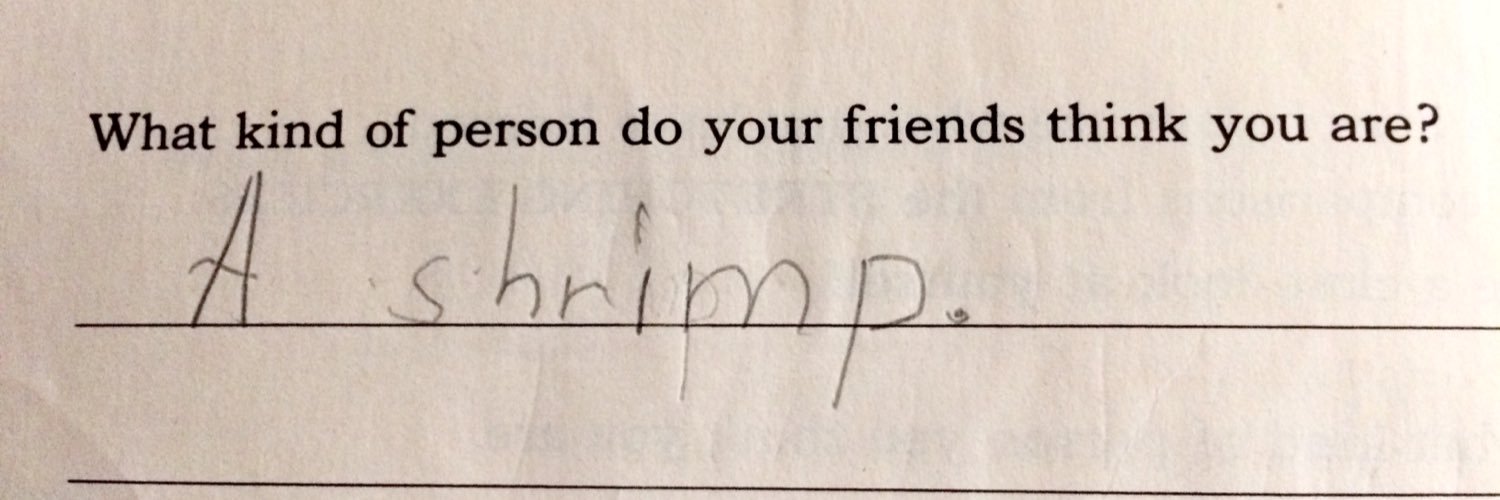 What kind of person do your friends think you are?
A shrimp.